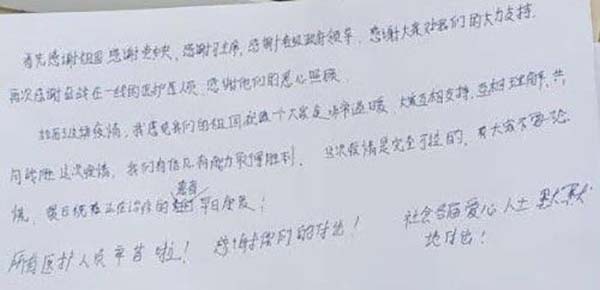 首先感谢祖国,感谢党中央,感谢习主席,感谢各级政府领导,感谢大家对我们的大力支持.
再次感谢奋战在一线的医护人员,感谢他们的悉心照顾.
疫情,我感觉我们的祖国就像一个大家庭非常温暖,大家互相支持,互相,共
同战胜这次疫情,我们有信心有能力取得胜利. 这次疫情是完全可控的,大家不要恐
慌,最后祝愿正在治疗的患者早日康复!
所有医护人员辛苦啦! 感谢你们的付出! 社会各届爱心人士默默
地付出!